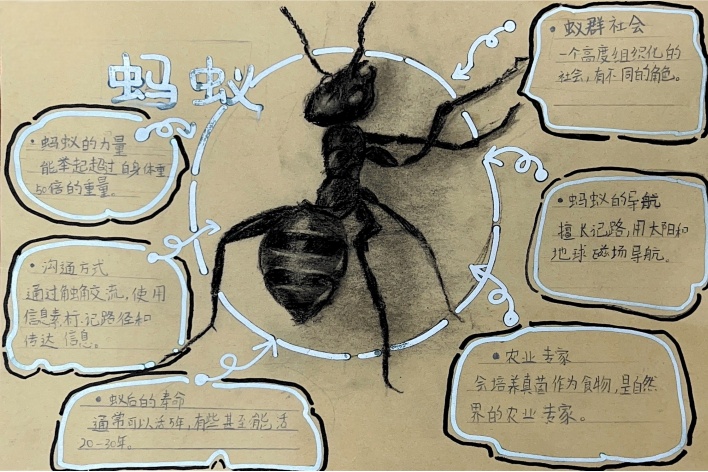 蚂蚁
• 蚁群社会
一个高度组织化的
社会，有不同的角色。
• 蚂蚁的力量
能举起超过自身体重
50倍的重量。
• 蚂蚁的导航
擅长记路，用太阳和
地球磁场导航。
• 沟通方式
通过触角交流，使用
信息素标记路径和
传达信息。
• 农业专家
会培养真菌作为食物，是自然
界的农业专家。
• 蚁后的寿命
通常可以活5年，有些甚至能活
20-30年。